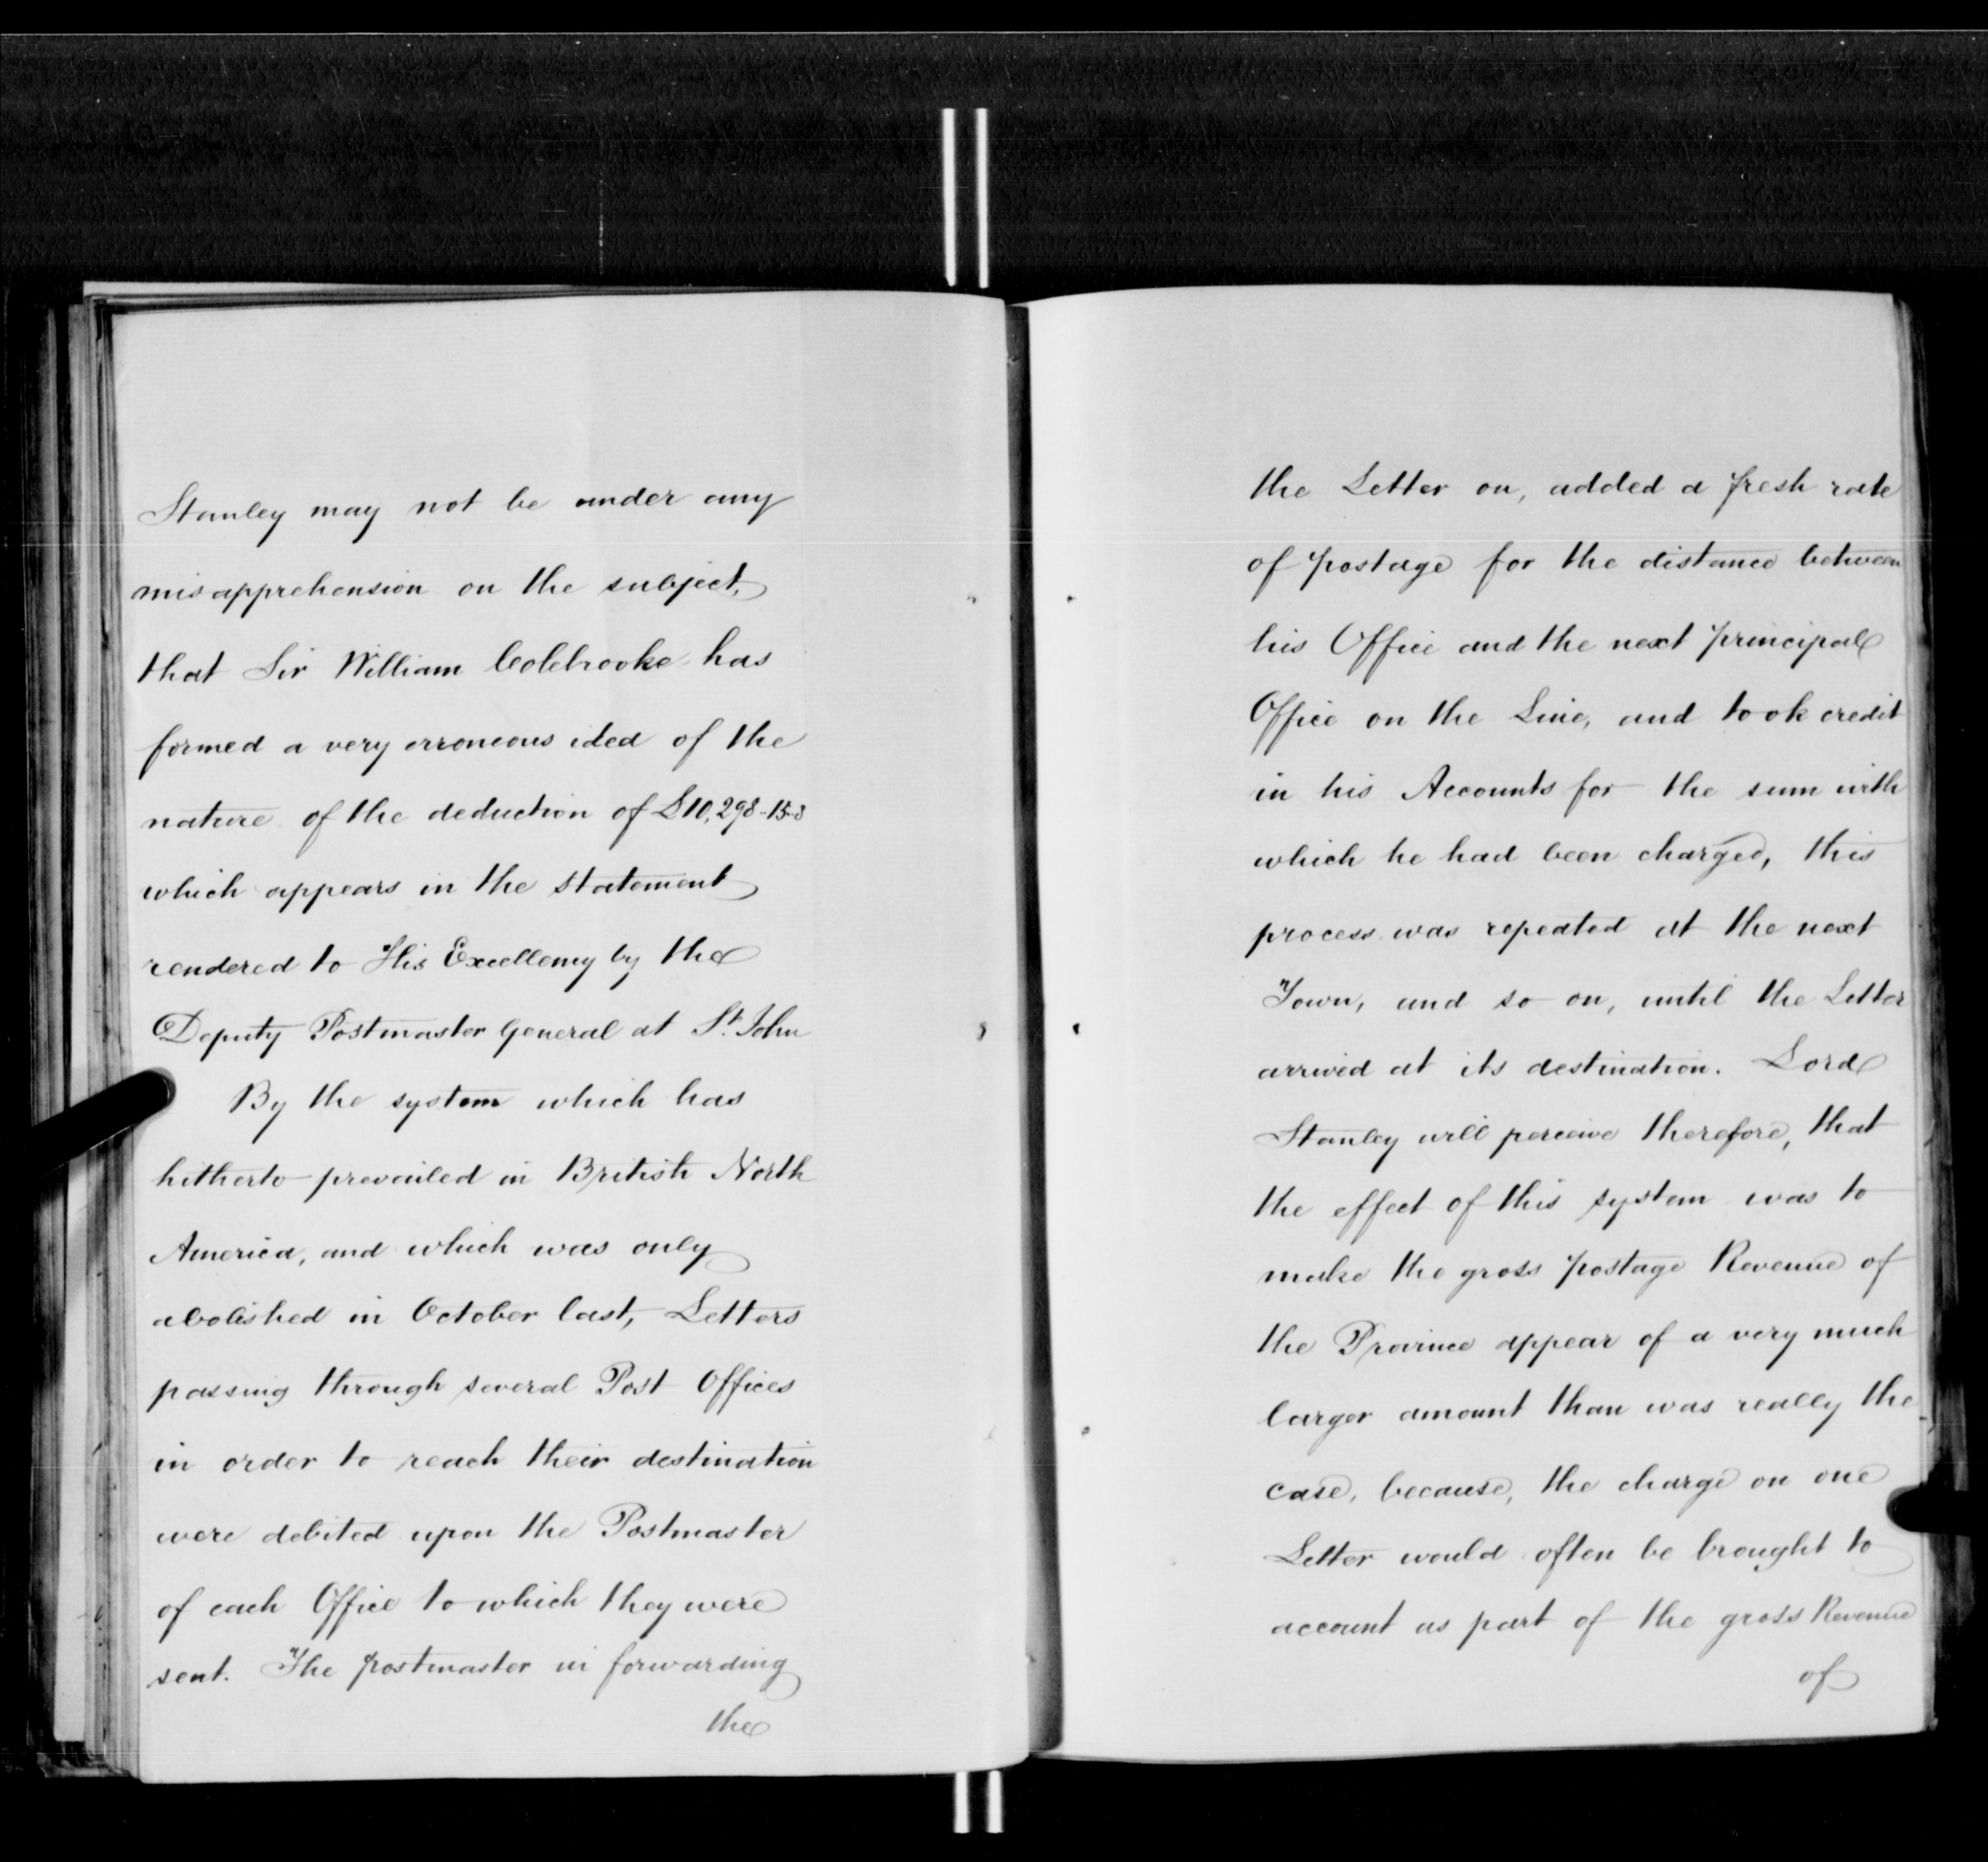 Stanley may not be under any
misapprehension on the subject,
that Sir William Colebrooke has
formed a very erroneous idea of the
nature of the deduction of £10,298..15..8
which appears in the statement
rendered to His Excellency by the
Deputy Postmaster General at St. John
By the system which has
hitherto prevailed in British North
America, and which was only
abolished in October last, Letters
passing through several Post Offices
in order to reach their destination
were debited upon the Postmaster
of each Office to which they were
sent. The postmaster in forwarding
the
the Letter on, added a fresh rate
of postage for the distance between
his Office and the next principal
Office on the Line, and took credit
in his Accounts for the sum with
which he had been charged, this
process was repeated at the next
Town, and so on, until the Letter
arrived at its destination. Lord
Stanley will perceive therefore, that
the effect of this system was to
make the gross postage Revenue of
the Province appear of a very much
larger amount than was really the
case, because, the charge on one
Letter would often be brought to
account as part of the gross Revenue
of